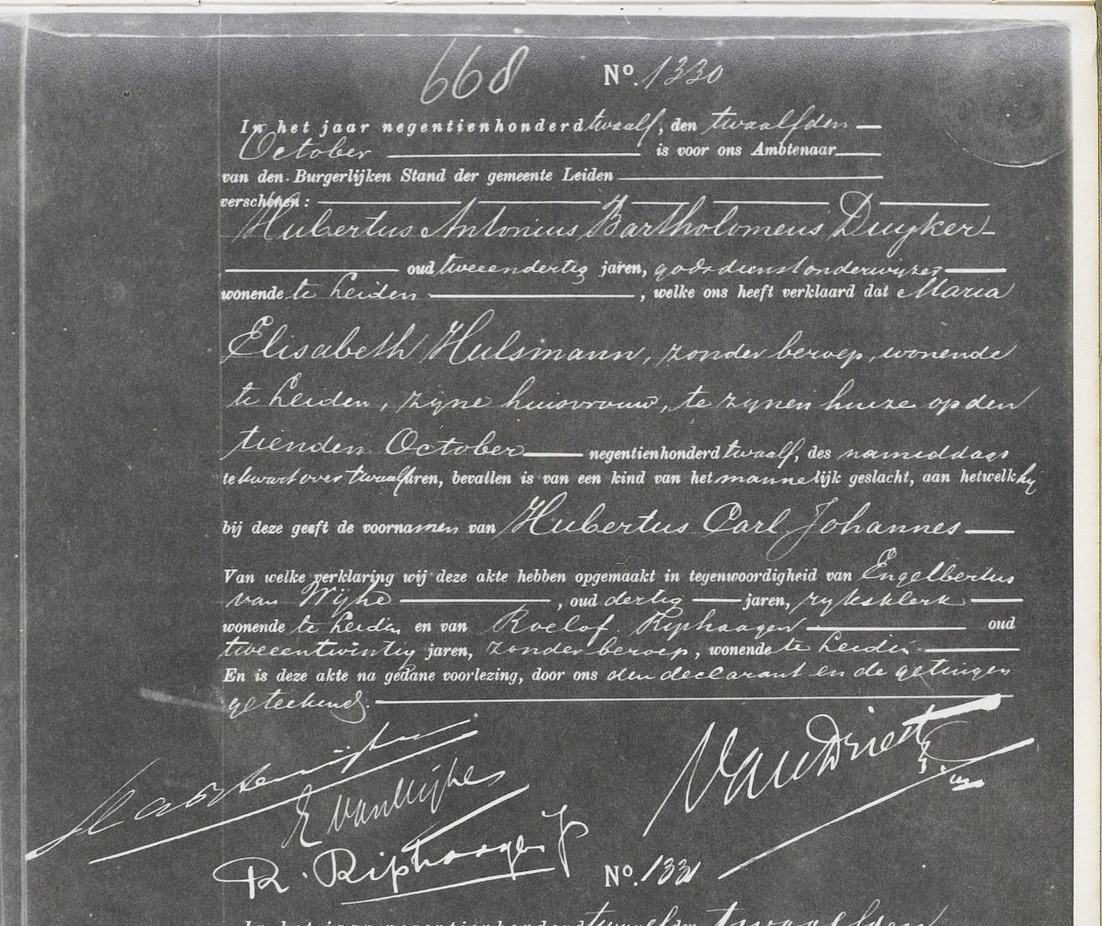 668 Nº. 1330
In het jaar negentienhonderd twaalf, den twaalfden
October is voor ons Ambtenaar
van den Burgerlijken Stand der gemeente Leiden
verschenen:
Hubertus Antonius Bartholomeus Duyker
oud tweeendertig jaren, godsdienstonderwijzer
wonende te Leiden, welke ons heeft verklaard dat Maria
Elisabeth Hulsmann, zonder beroep, wonende
te Leiden, zijne huisvrouw, te zijnen huize op den
tienden October negentienhonderd twaalf, des namiddags
te kwart over twaalf uren, bevallen is van een kind van het mannelijk geslacht, aan hetwelk hij
bij deze geeft de voornamen van Hubertus Carl Johannes
Van welke verklaring wij deze akte hebben opgemaakt in tegenwoordigheid van Engelbertus
van Wijhe, oud dertig jaren, rijksklerk
wonende te Leiden en van Roelof Riphaagen oud
tweeentwintig jaren, zonder beroep, wonende te Leiden
En is deze akte na gedane voorlezing, door ons den declarant en de getuigen
geteekend.
van Driest
E van Wijhe
R. Riphaagen Jr
Nº. 1331
In het jaar negentienhonderd twaalf den twaalfden